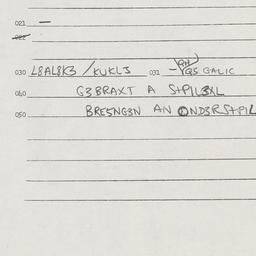 021 —
022
030 L8AL8K3 / KUKLJ 031 — QS GALIC
060 G3BRAXT A S+PIL3XL
050 BRE5NG3N AN OND3RS+PIL